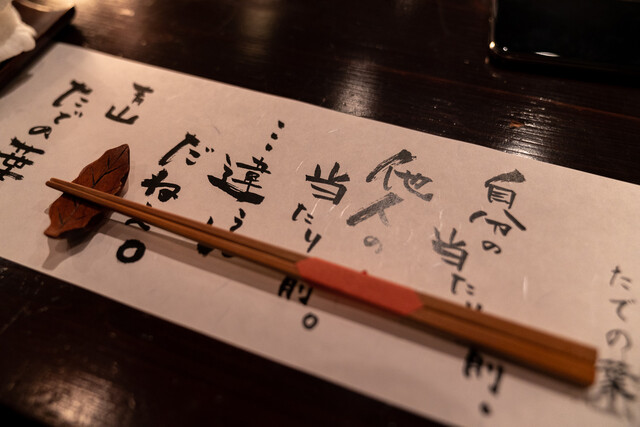 たでの葉
自分の
当たり前。
他人の
当たり前。
違う
だね。
青山
たでの葉